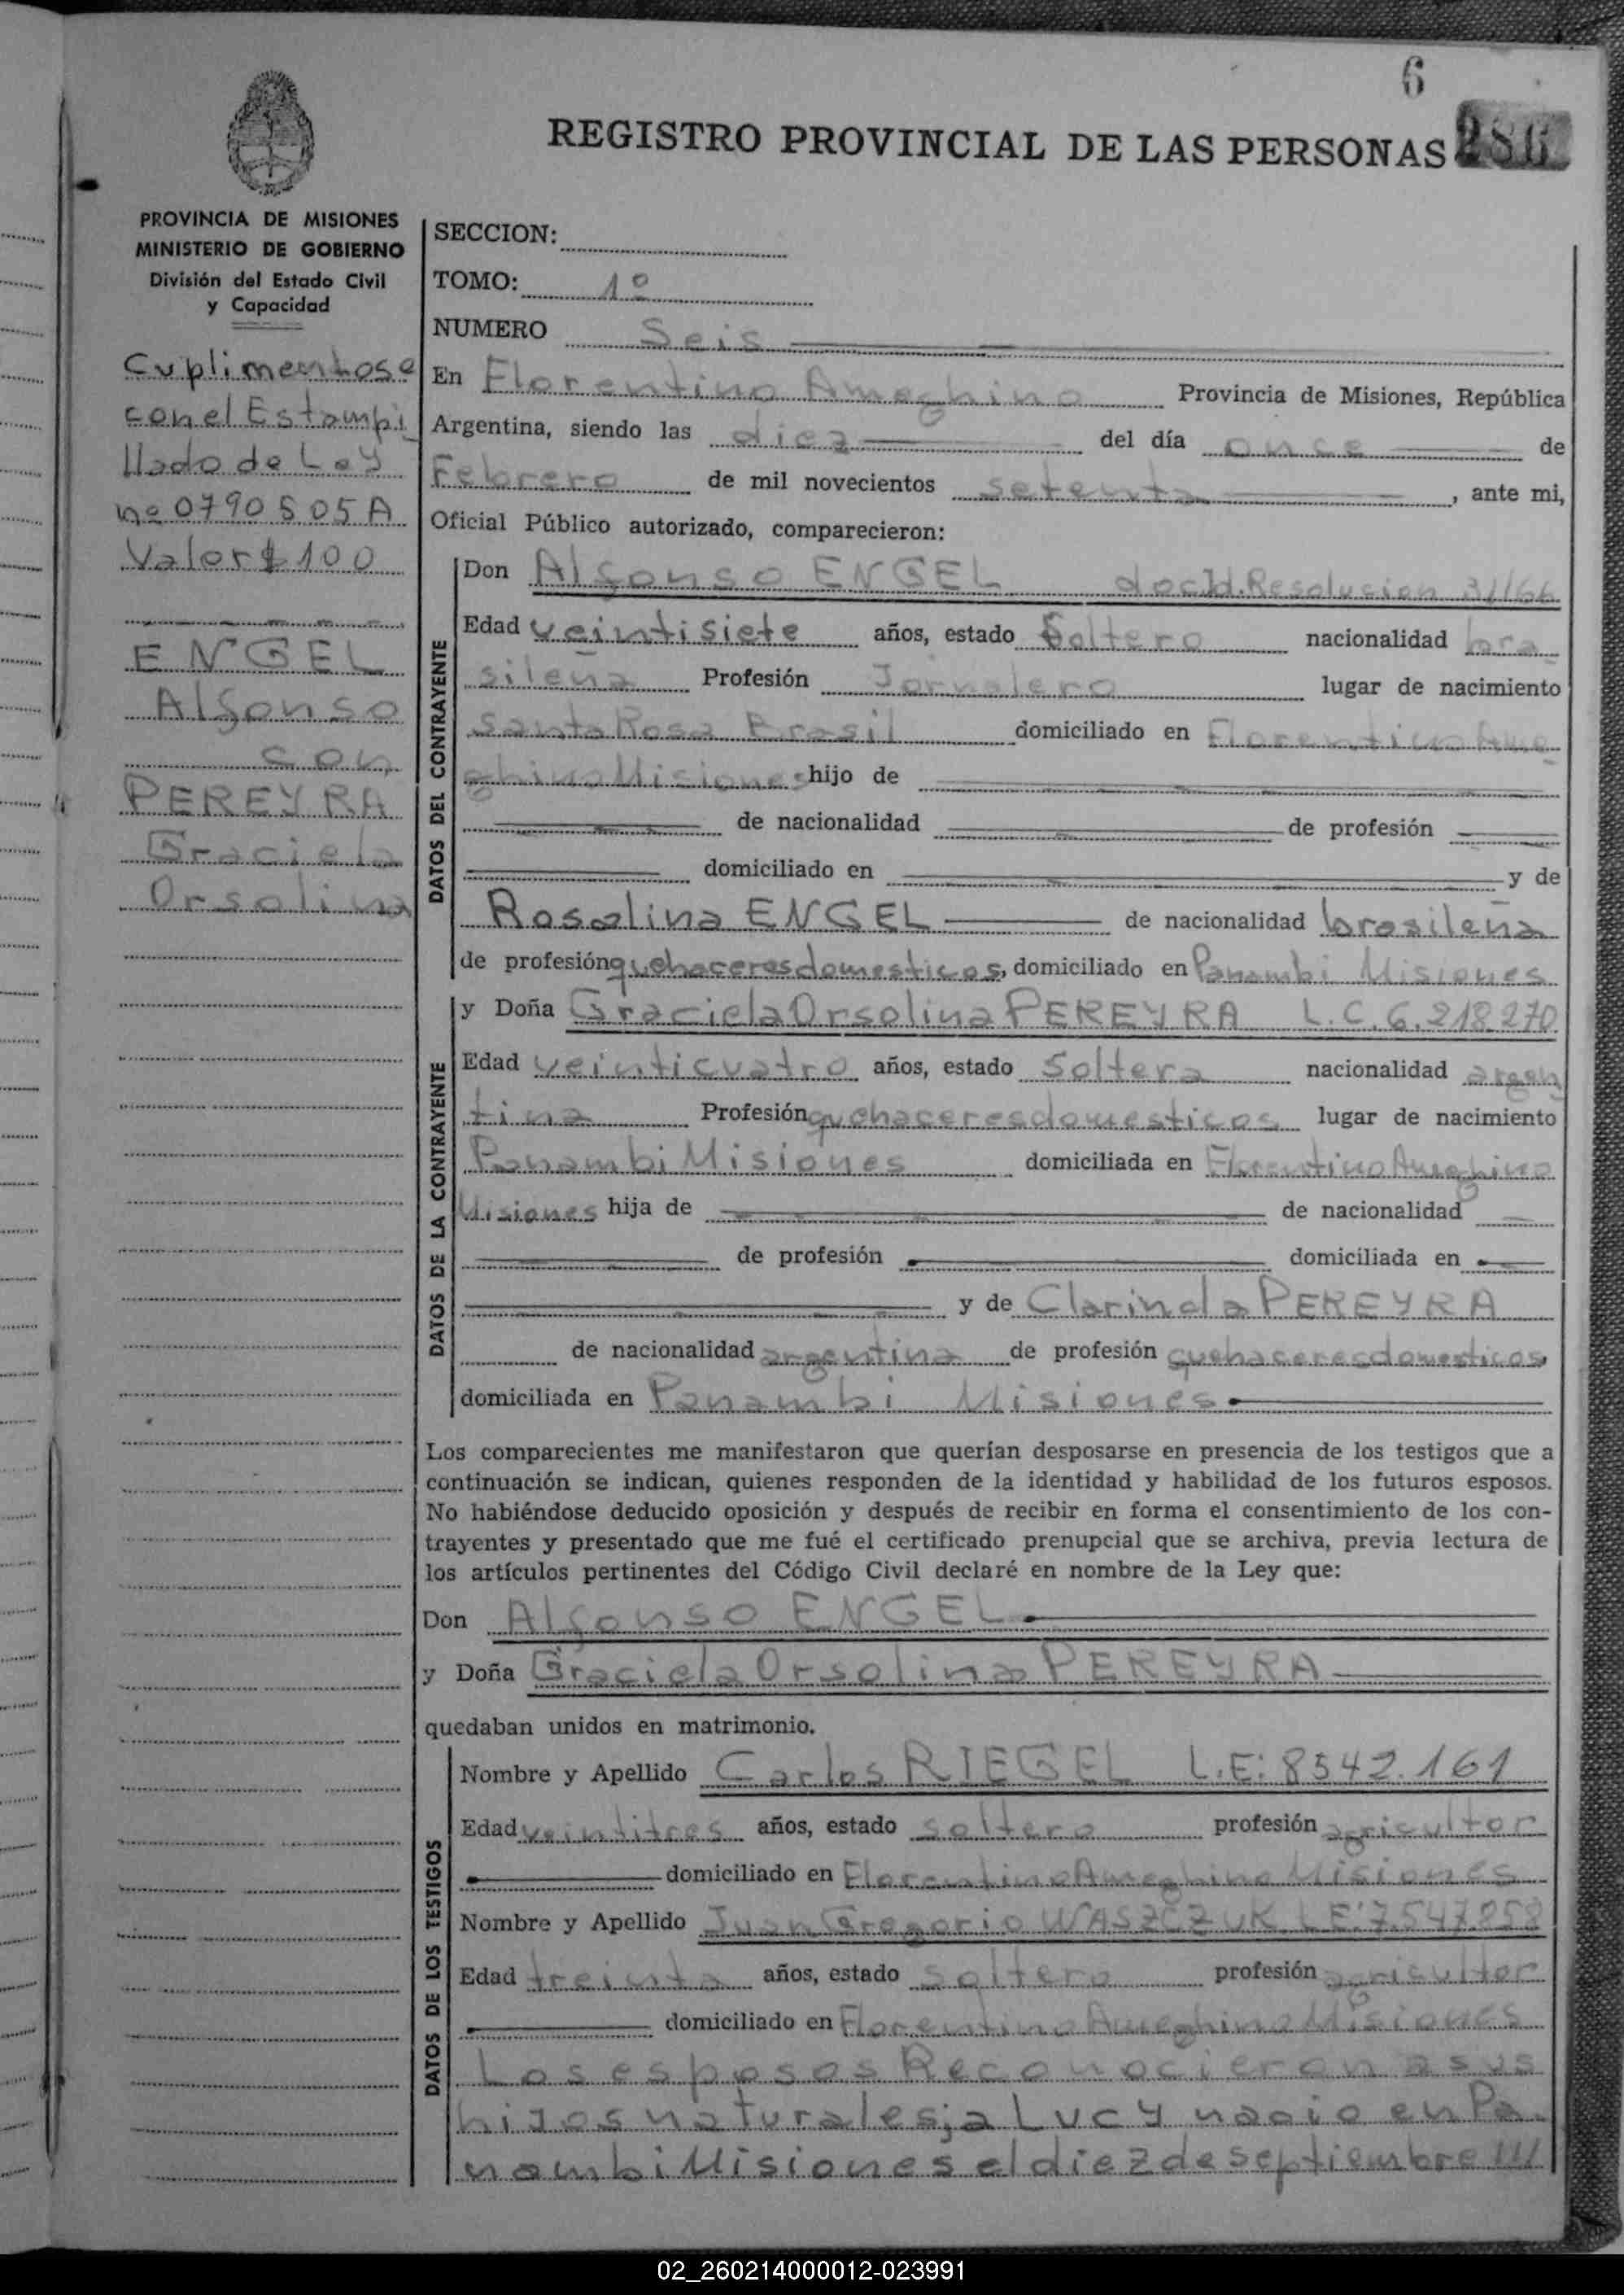 6
REGISTRO PROVINCIAL DE LAS PERSONAS 286
PROVINCIA DE MISIONES
MINISTERIO DE GOBIERNO
División del Estado Civil
y Capacidad
Cuplimentose
con el Estampi
llado de Ley
nº 0790505A
Valor $ 100
ENGEL
Alfonso
con
PEREYRA
Graciela
Orsolina
SECCION:
TOMO: 1º
NUMERO Seis
En Florentino Ameghino Provincia de Misiones, República
Argentina, siendo las diez del día once de
Febrero de mil novecientos setenta, ante mi,
Oficial Público autorizado, comparecieron:
DATOS DEL CONTRAYENTE
Don Alfonso ENGEL doc.Id. Resolucion 31/66
Edad veintisiete años, estado Soltero nacionalidad bra
sileña Profesión Jornalero lugar de nacimiento
Santa Rosa Brasil domiciliado en Florentino Ame
ghino Misiones hijo de
de nacionalidad de profesión
domiciliado en y de
Rosalina ENGEL de nacionalidad brasileña
de profesión quehaceres domesticos, domiciliado en Panambi Misiones
DATOS DE LA CONTRAYENTE
y Doña Graciela Orsolina PEREYRA L.C. 6.218.270
Edad veinticuatro años, estado Soltera nacionalidad argen
tina Profesión quehaceres domesticos lugar de nacimiento
Panambi Misiones domiciliada en Florentino Ameghino
Misiones hija de de nacionalidad
de profesión domiciliada en
y de Clarinda PEREYRA
de nacionalidad argentina de profesión quehaceres domesticos,
domiciliada en Panambi Misiones
Los comparecientes me manifestaron que querían desposarse en presencia de los testigos que a
continuación se indican, quienes responden de la identidad y habilidad de los futuros esposos.
No habiéndose deducido oposición y después de recibir en forma el consentimiento de los con-
trayentes y presentado que me fué el certificado prenupcial que se archiva, previa lectura de
los artículos pertinentes del Código Civil declaré en nombre de la Ley que:
Don Alfonso ENGEL
y Doña Graciela Orsolina PEREYRA
quedaban unidos en matrimonio.
DATOS DE LOS TESTIGOS
Nombre y Apellido Carlos RIEGEL L.E: 8542.161
Edad veintitres años, estado soltero profesión agricultor
domiciliado en Florentino Ameghino Misiones
Nombre y Apellido Juan Gregorio WASZCZUK L E: 7.547.058
Edad treinta años, estado soltero profesión agricultor
domiciliado en Florentino Ameghino Misiones
Los esposos Reconocieron a sus
hijos naturales; a Lucy nacio en Pa-
nambi Misiones el diez de septiembre ///
02_260214000012-023991